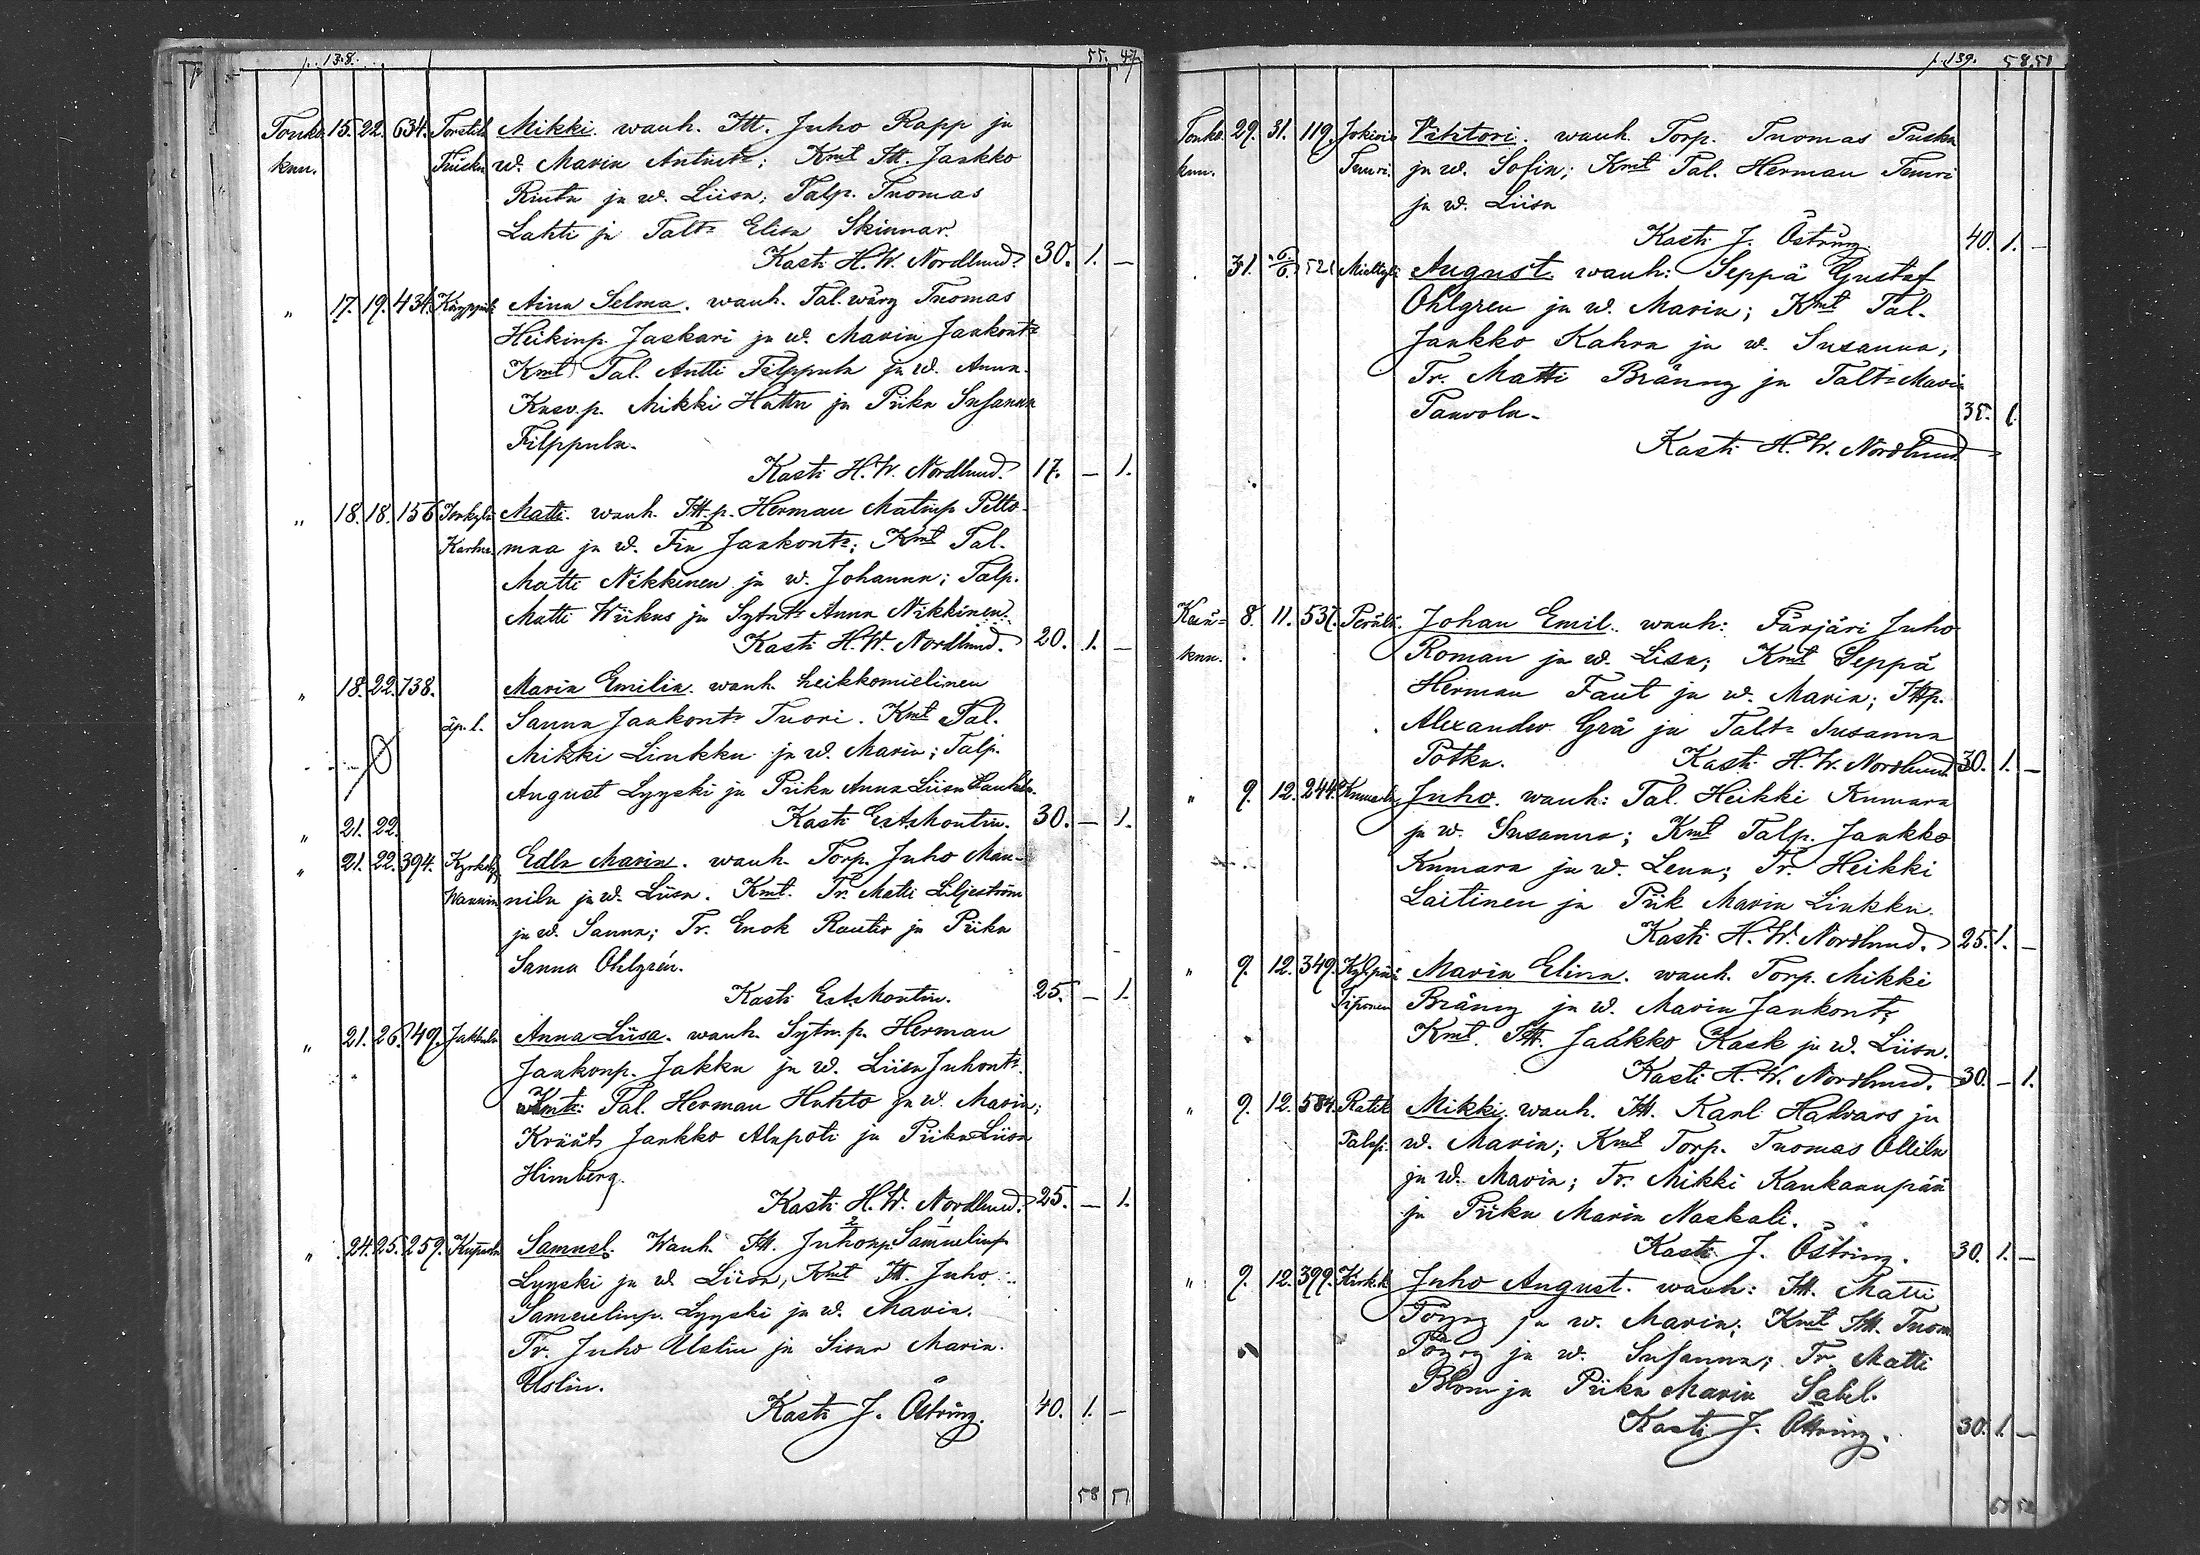 p. 138. 55. 47
Touko- 15. 22. 634. Mikki. wanh. Itt. Juho Rapp ja
knn. w. Maria Antint:; Kmt Itt. Jaakko
Rinta ja w. Liisa; Talp. Tuomas
Lahti ja Talt: Elisa Skinnar.
Kasti H. W. Nordlund. 30. 1. —
„ 17. 19. 434. Aina Selma. wanh. Tal. wäwy Tuomas
Heikinp. Jaskari ja w. Maria Jaakont:
Kmt Tal. Antti Filppula ja w. Anna.
Kasv. p. Mikki Hattu ja Piika Susanna
Filppula.
Kasti H. W. Nordlund. 17. — 1.
„ 18. 18. 156 Matti. wanh. Itt. p. Herman Matinp Pelto-
maa ja w. Fia Jaakont:; Kmt Tal.
Matti Nikkinen ja w. Johanna; Talp.
Matti Wiikus ja Sytnt: Anna Nikkinen.
Kasti H. W. Nordlund. 20. 1. —
„ 18. 22. 738. Maria Emilia. wanh. heikkomielinen
äp. l. Sanna Jaakont: Tuori. Kmt Tal.
Mikki Linkku ja w. Maria; Talp.
August Lyyski ja Piika Anna Liisa
Kasti 30. — 1.
„ 21. 22.
„ 21. 22. 394. Edla Maria. wanh. Torp. Juho Man-
nila ja w. Liisa. Kmt. Tr. Matti Liljeström
ja w. Sanna; Tr. Enok Rautio ja Piika
Sanna Ohlgrén.
Kasti 25. — 1.
„ 21. 26. 49. Jakkula Anna Liisa. wanh. Sytn. p. Herman
Jaakonp. Jakku ja w. Liisa Juhont:
Kmt: Tal. Herman Huhto ja w. Maria;
Kräät. Jaakko Alapoti ja Piika Liisa
Himberg.
Kasti H. W. Nordlund. 25. — 1.
„ 24. 25. 259. Samuel. Wanh. Itt. Juhonp Samuelinp
Lyyski ja w. Liisa, Kmt Itt. Juho
Samuelinp. Lyyski ja w. Maria.
Tr. Juho Uslin ja Sisar Maria
Uslin.
Kasti J. Östring. 40. 1. —
58 51
p. 139. 58. 51
Touko- 29. 31. 119. Vihtori. wanh. Torp. Tuomas Tuiska
knn. Tuuri. ja w. Sofia; Kmt Tal. Herman Tuuri
ja w. Liisa
Kasti J. Östring. 40. 1. —
31. 6/6 521 August. wanh: Seppä Gustaf
Ohlgren ja w. Maria; Kmt Tal.
Jaakko Kahra ja w. Susanna,
Tr. Matti Bränng ja Talt: Maria
Panvola. 35. 1.
Kasti H. W. Nordlund
Kesä- 8. 11. 537. Perälä. Johan Emil. wanh: Färjäri Juho
knn. Roman ja w. Lisa; Kmt Seppä
Herman Faut ja w. Maria; Ittp.
Alexander Grå ja Talt: Susanna
Potka. Kasti H. W. Nordlund. 30. 1. —
„ 9. 12. 244. Juho. wanh: Tal. Heikki Knmara
ja w. Susanna; Kmt Talp. Jaakko
Knmara ja w. Lena; Tr. Heikki
Laitinen ja Piik Maria Linkku.
Kasti H. W. Nordlund. 25. 1. —
„ 9. 12. 349. Maria Elina. wanh. Torp. Mikki
Piponen Bräng ja w. Maria Jaakont:
Kmt. Itt. Jaakko Kask ja w. Liisa.
Kasti H. W. Nordlund. 30. — 1.
„ 9. 12. 584. Mikki. wanh. Itt. Karl Halvars ja
w. Maria; Kmt Torp. Tuomas Ollila
ja w. Maria; Tr. Mikki Kankaanpää
ja Piika Maria Naskali.
Kasti J. Östring. 30. 1. —
„ 9. 12. 399. Kirk. k. Juho August. wanh: Itt. Matti
Pöyry ja w. Maria; Kmt Itt. Tuom
Pöyry ja w. Susanna; Tr. Matti
Blom ja Piika Maria Sabel.
Kasti J. Östring. 30. 1. —